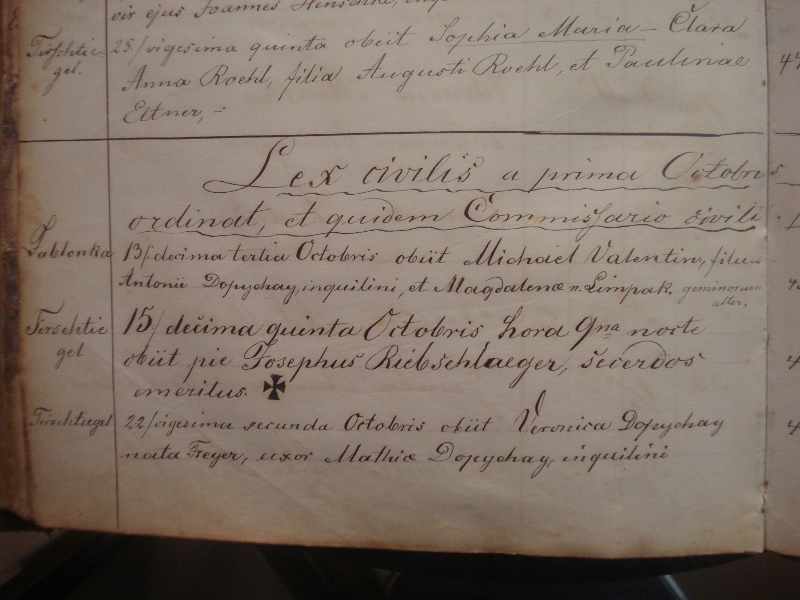 vir ejus Joannes Henschke,
Tirschtie- 25/ vigesima quinta obiit Sophia Maria - Clara
gel. Anna Roehl, filia Augusti Roehl, et Paulinae
Ettner, -
Lex civilis a prima Octobris
ordinat, et quidem Commissario civili
Jablonka 13/. decima tertia Octobris obiit Michael Valentin, filius
Antonii Dopychay, inquilini, et Magdalenae n. Limpak. geminorum
alter.
Tirschtie 15/ decima quinta Octobris hora 9na nocte
gel obiit pie Josephus Riebschlaeger, sacerdos
emeritus. ✠
Tirschtiegel 22/ vigesima secunda Octobris obiit Veronica Dopychay
nata Freyer, uxor Mathiae Dopychay, inquilini